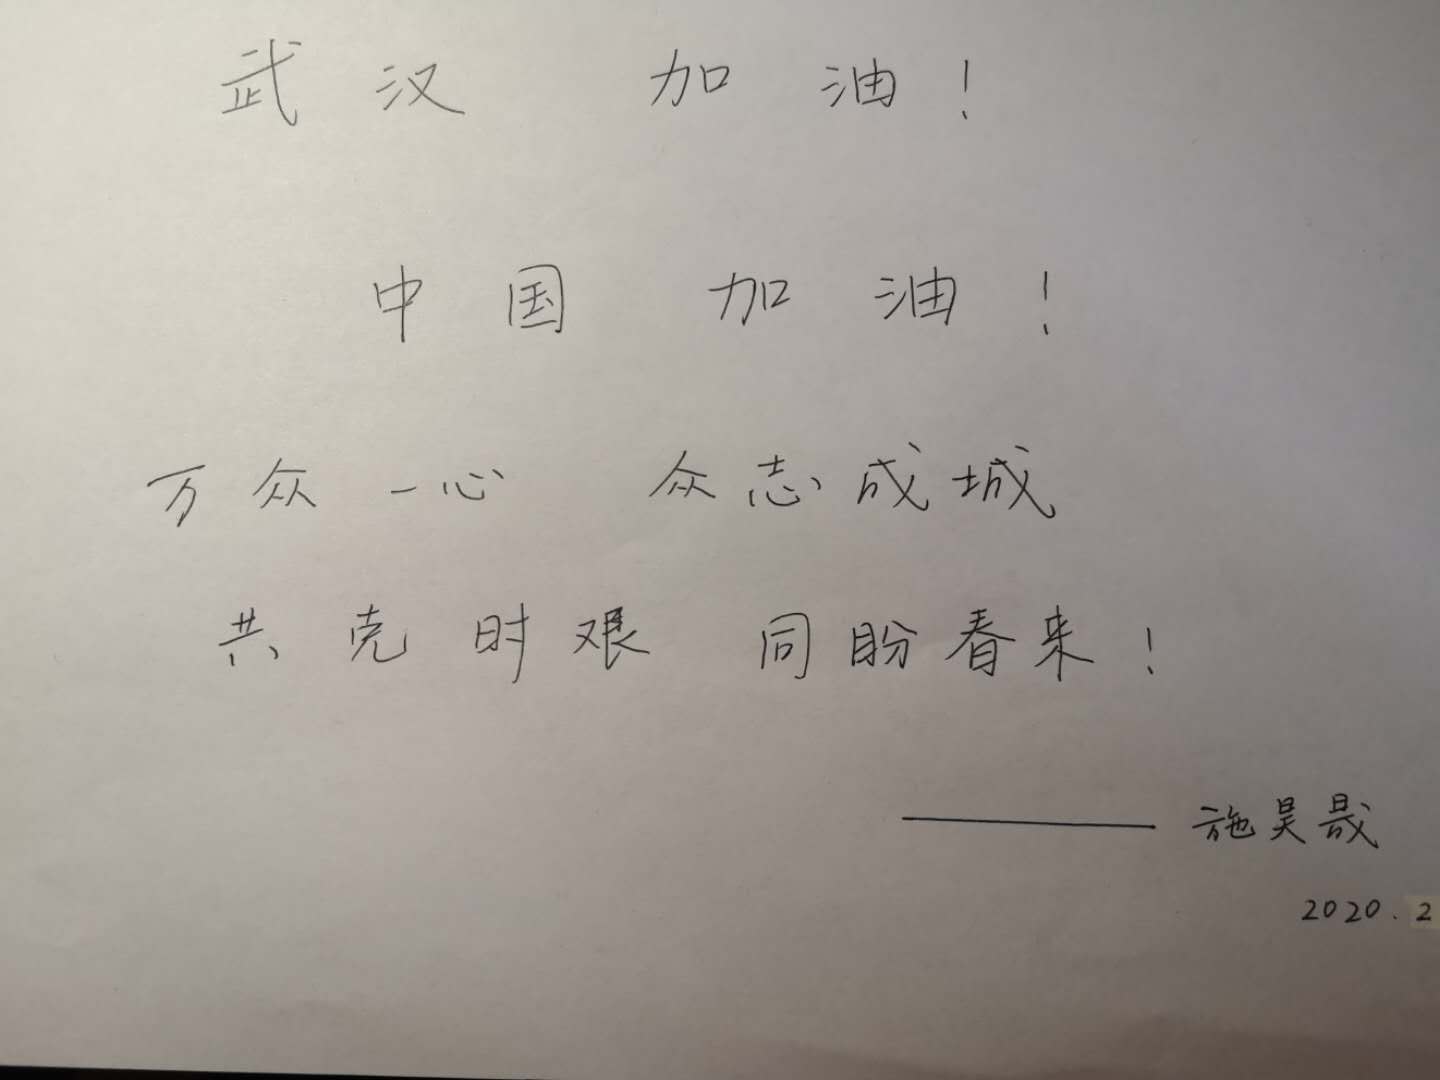 武汉 加油！
中国 加油！
万众一心 众志成城
共克时艰 同盼春来！
—— 施昊晸
2020.2